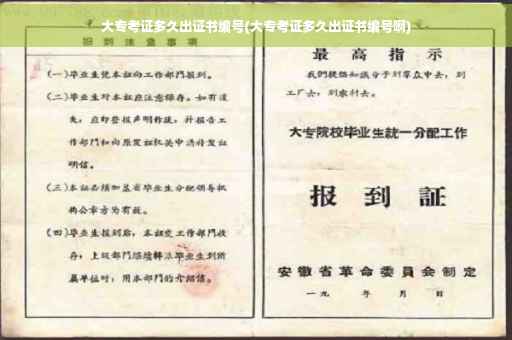 大专考证多久出证书编号(大专考证多久出证书编号啊)
报到注意事项
(一)毕业生凭本证向工作部门报到。
(二)毕业生对本证应注意保存。如有遗
失，应即登报声明作废，并报告工
作部门和向原发证机关申请补发证
明信。
(三)本证必须加盖省毕业生分配领导机
构公章方为有效。
(四)毕业生报到后，本证交工作部门收
存；上级部门
毕业生到所
属单位时，用本部门的介绍信。
最高指示
我们提倡知识分子到群众中去，到
工厂去，到农村去。
大专院校毕业生統一分配工作
报到証
安徽省革命委員会制定
一九 年 月 日